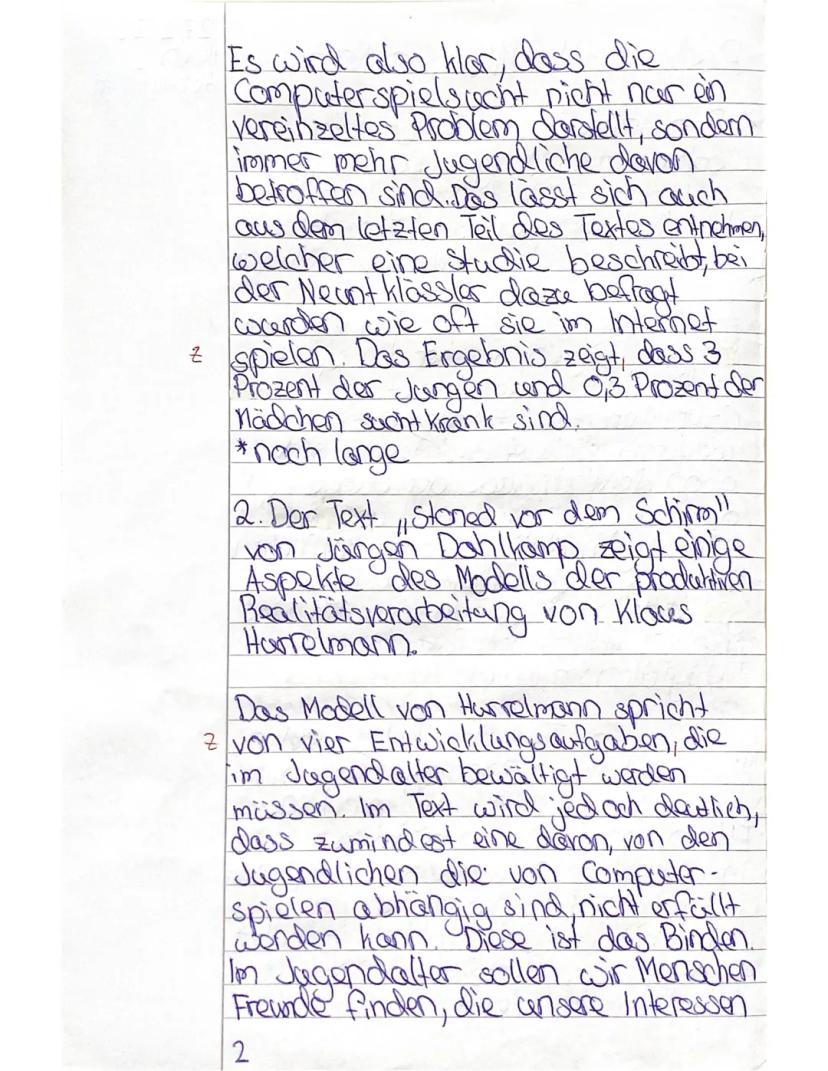 Es wird also klar, dass die
Computerspielsucht nicht nur ein
vereinzeltes Problem darstellt, sondern
immer mehr Jugendliche davon
betroffen sind. Das lässt sich auch
aus dem letzten Teil des Textes entnehmen,
welcher eine Studie beschreibt, bei
der Neuntklässler dazu befragt
wurden wie oft sie im Internet
Z spielen. Das Ergebnis zeigt, dass 3
Prozent der Jungen und 0,3 Prozent der
Mädchen suchtkrank sind.
* noch lange
2. Der Text „Stoned vor dem Schirm"
von Jürgen Dahlkamp zeigt einige
Aspekte des Modells der produktiven
Realitätsverarbeitung von Klaus
Hurrelmann.
Das Modell von Hurrelmann spricht
Z von vier Entwicklungsaufgaben, die
im Jugendalter bewältigt werden
müssen. Im Text wird jedoch deutlich,
dass zumindest eine davon, von den
Jugendlichen die von Computer-
spielen abhängig sind, nicht erfüllt
werden kann. Diese ist das Binden.
Im Jugendalter sollen wir Menschen
Freunde finden, die unsere Interessen
2